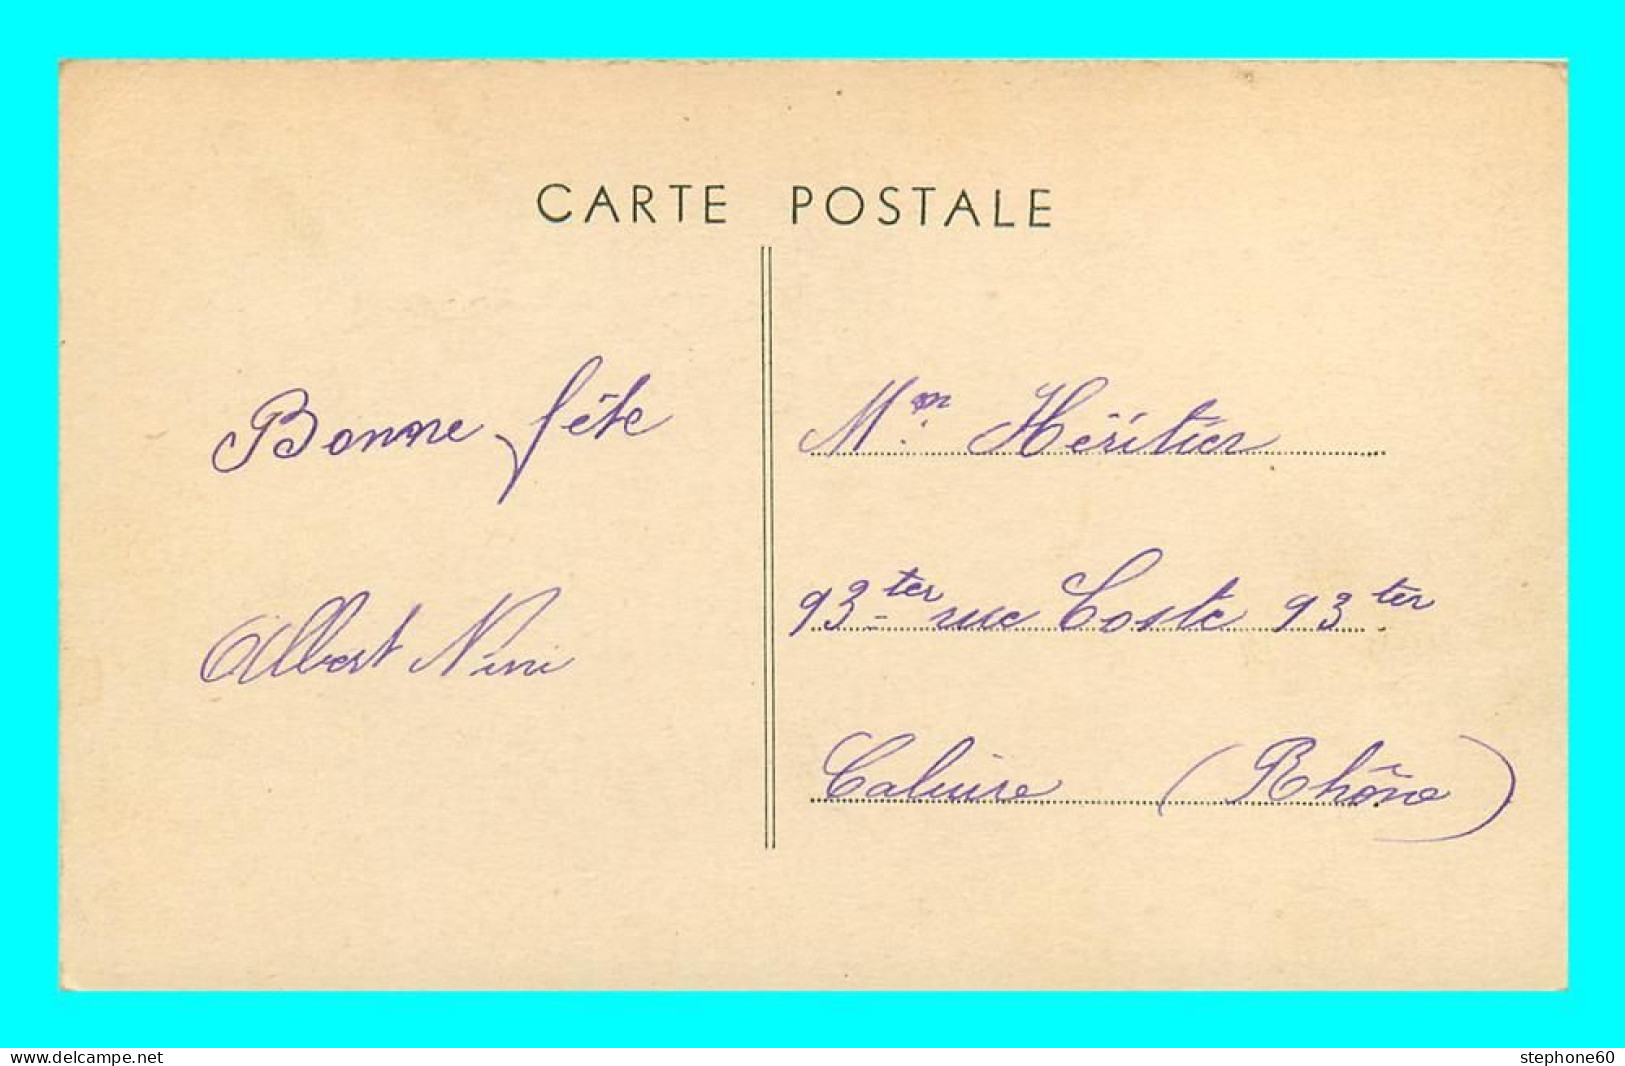 CARTE POSTALE
Bonne fête
Albert Nini
Mon Héritier
93 ter rue Coste 93 ter
Caluire (Rhône)
www.delcampe.net
stephone60